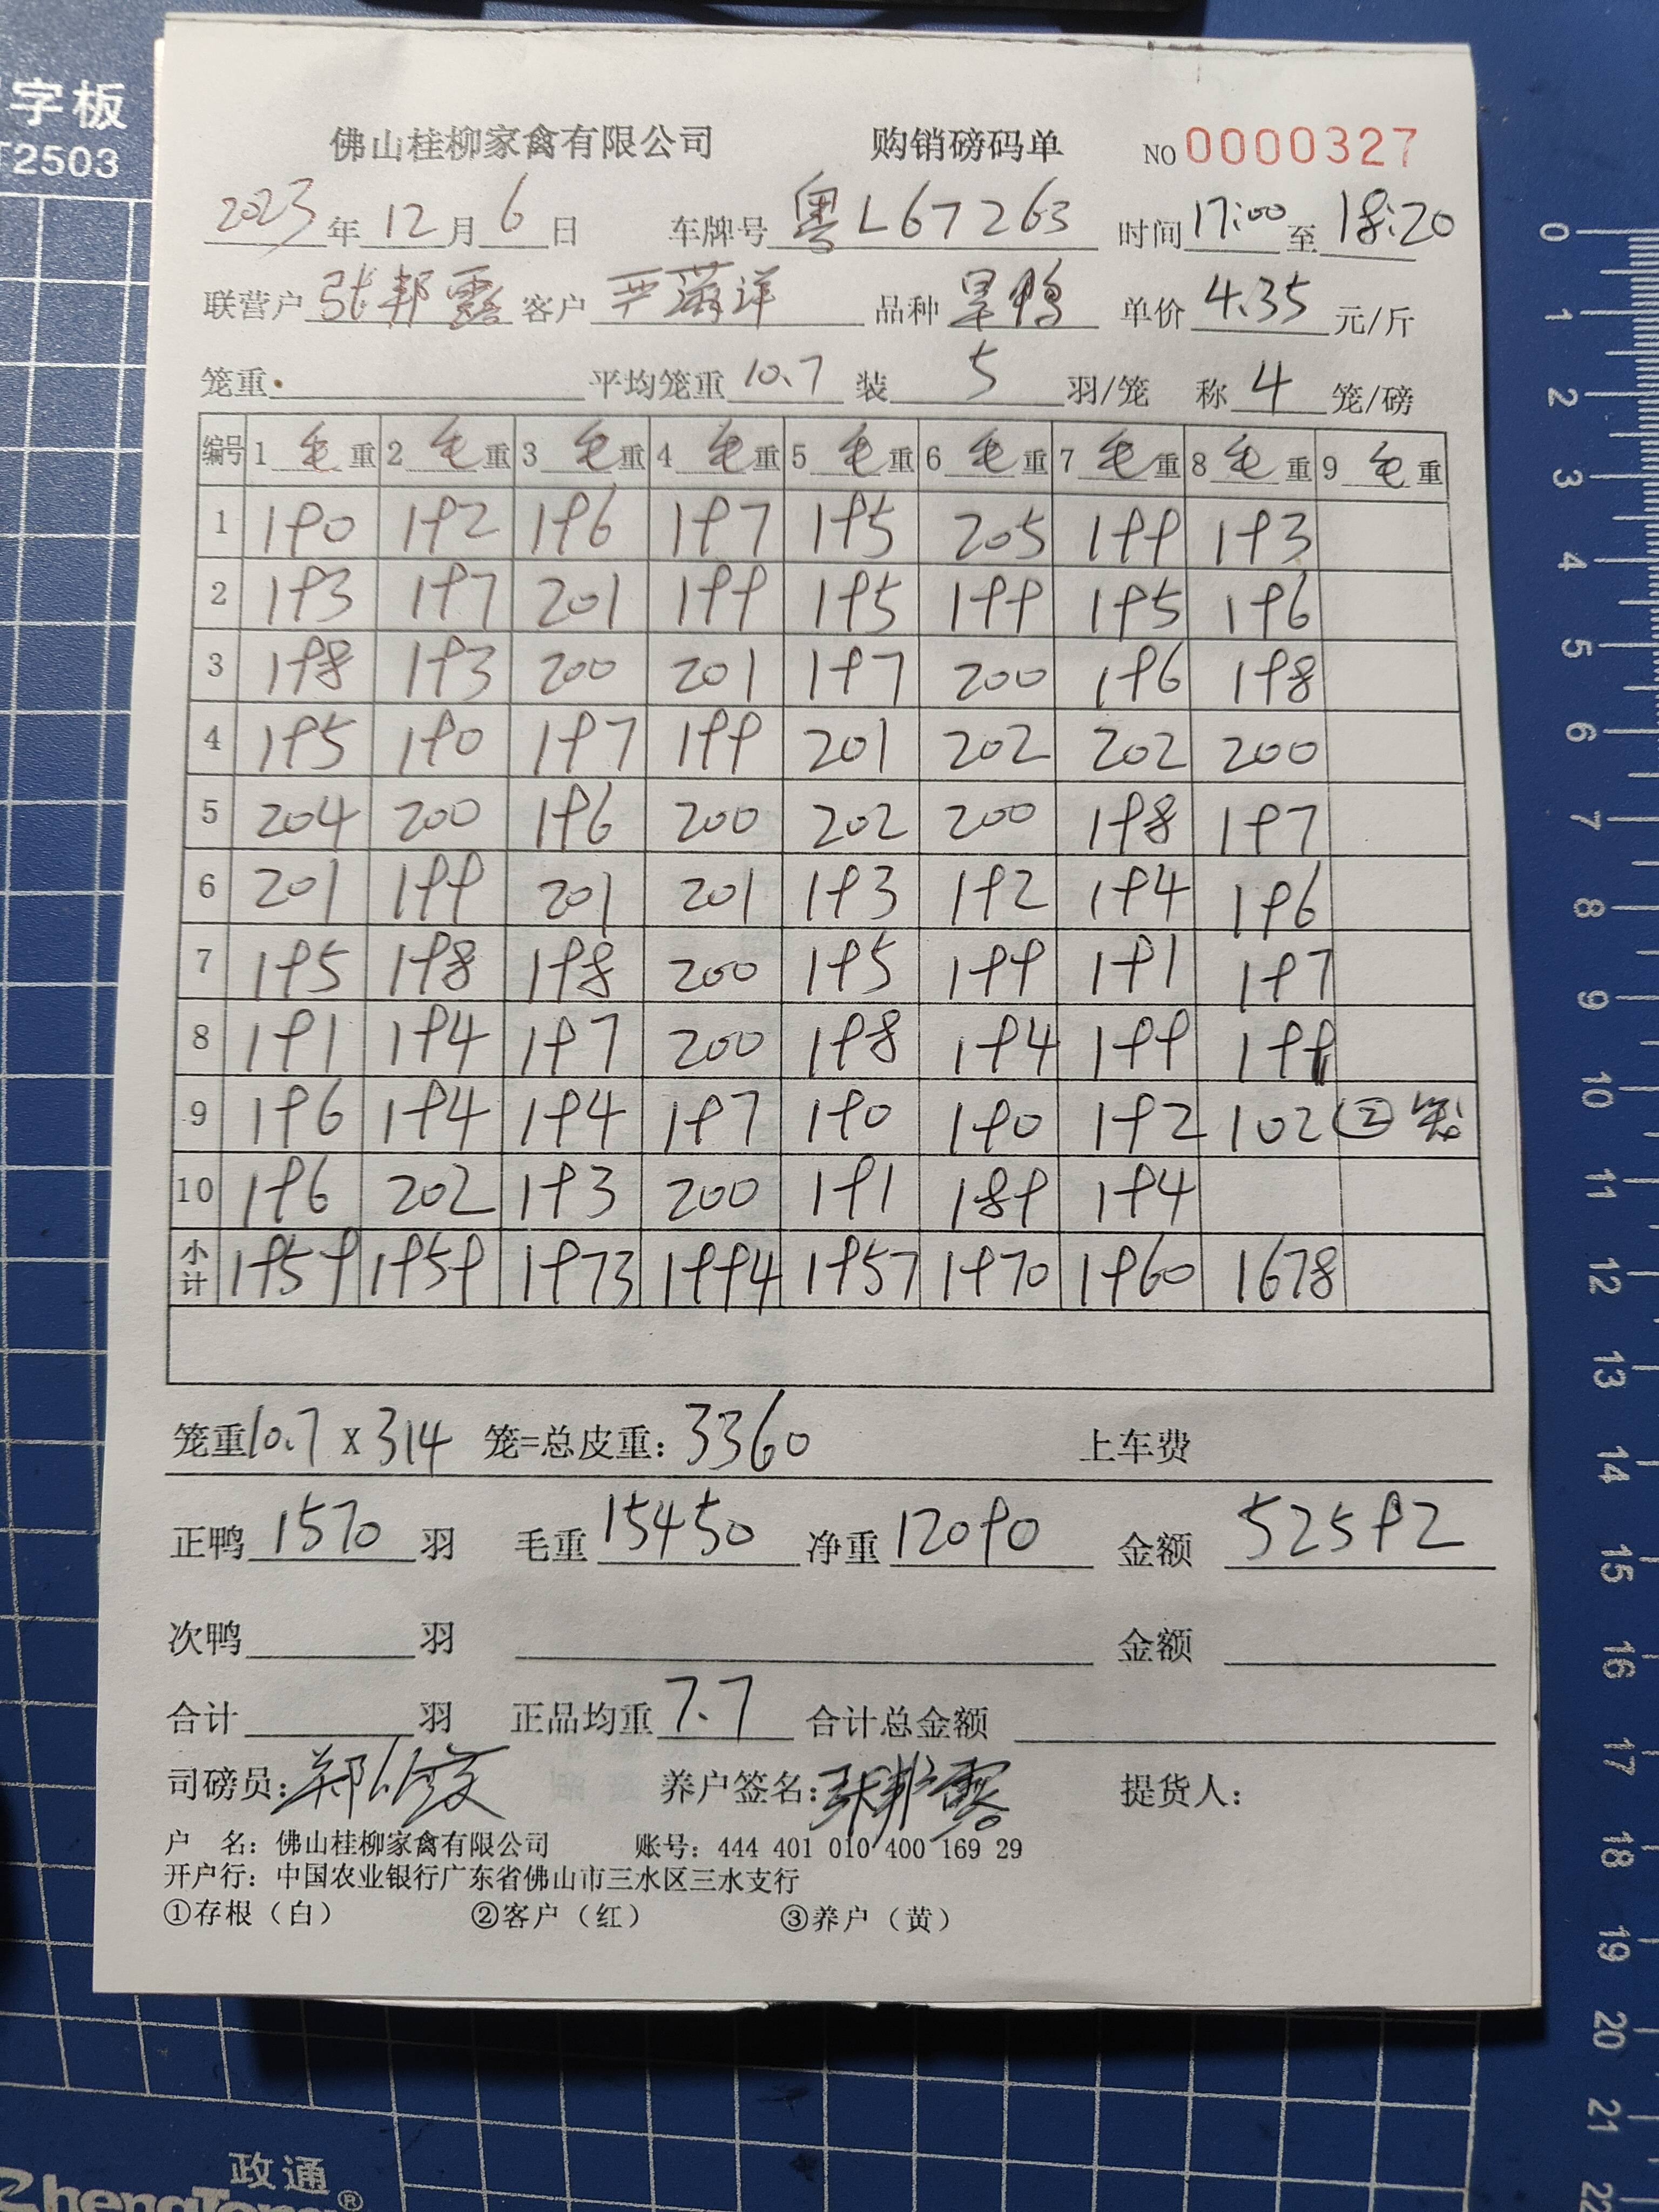 字板
T2503
佛山桂柳家禽有限公司 购销磅码单 NO 0000327
2023年12月6日 车牌号 粤L67263 时间17:00至18:20
联营户 张邦露 客户 严满洋 品种 旱鸭 单价 4.35 元/斤
笼重 平均笼重 10.7 装 5 羽/笼 称 4 笼/磅
编号 1 毛重 2 毛重 3 毛重 4 毛重 5 毛重 6 毛重 7 毛重 8 毛重 9 毛重
1 190 192 196 197 195 205 199 193
2 193 197 201 199 195 199 195 196
3 198 193 200 201 197 200 196 198
4 195 190 197 199 201 202 202 200
5 204 200 196 200 202 200 198 197
6 201 199 201 201 193 192 194 196
7 195 198 198 200 195 199 191 197
8 191 194 197 200 198 194 199 199
9 196 194 194 197 190 190 192 102
10 196 202 193 200 191 189 194
小计 1959 1959 1973 1994 1957 1970 1960 1678
笼重10.7 x 314 笼=总皮重：3360 上车费
正鸭 1570 羽 毛重 15450 净重 12090 金额 52592
次鸭 羽 金额
合计 羽 正品均重 7.7 合计总金额
司磅员： 养户签名：张邦露 提货人：
户 名：佛山桂柳家禽有限公司 账号：444 401 010 400 169 29
开户行：中国农业银行广东省佛山市三水区三水支行
①存根（白） ②客户（红） ③养户（黄）
0
1
2
3
4
5
6
7
8
9
10
11
12
13
14
15
16
17
18
19
20
21
22
政通